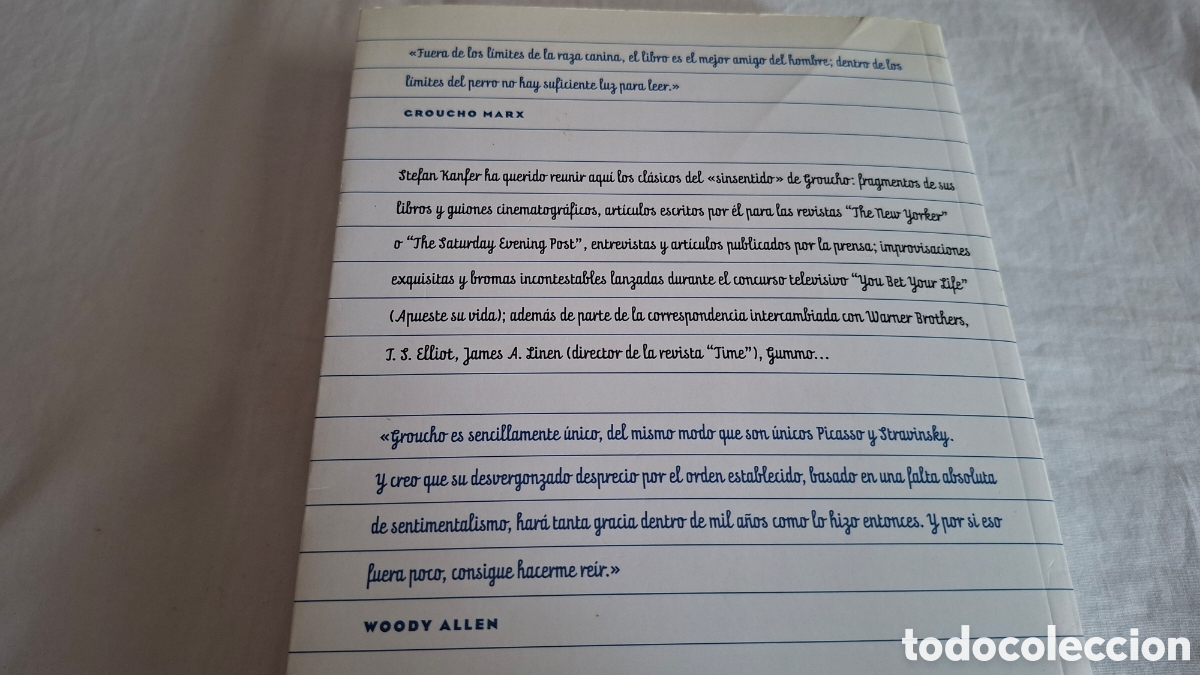 «Fuera de los límites de la raza canina, el libro es el mejor amigo del hombre; dentro de los
límites del perro no hay suficiente luz para leer.»
GROUCHO MARX
Stefan Kanfer ha querido reunir aquí los clásicos del «sinsentido» de Groucho: fragmentos de sus
libros y guiones cinematográficos, artículos escritos por él para las revistas "The New Yorker"
o "The Saturday Evening Post", entrevistas y artículos publicados por la prensa; improvisaciones
exquisitas y bromas incontestables lanzadas durante el concurso televisivo "You Bet Your Life"
(Apueste su vida); además de parte de la correspondencia intercambiada con Warner Brothers,
T. S. Elliot, James A. Linen (director de la revista "Time"), Gummo...
«Groucho es sencillamente único, del mismo modo que son únicos Picasso y Stravinsky.
Y creo que su desvergonzado desprecio por el orden establecido, basado en una falta absoluta
de sentimentalismo, hará tanta gracia dentro de mil años como lo hizo entonces. Y por si eso
fuera poco, consigue hacerme reír.»
WOODY ALLEN
todocoleccion